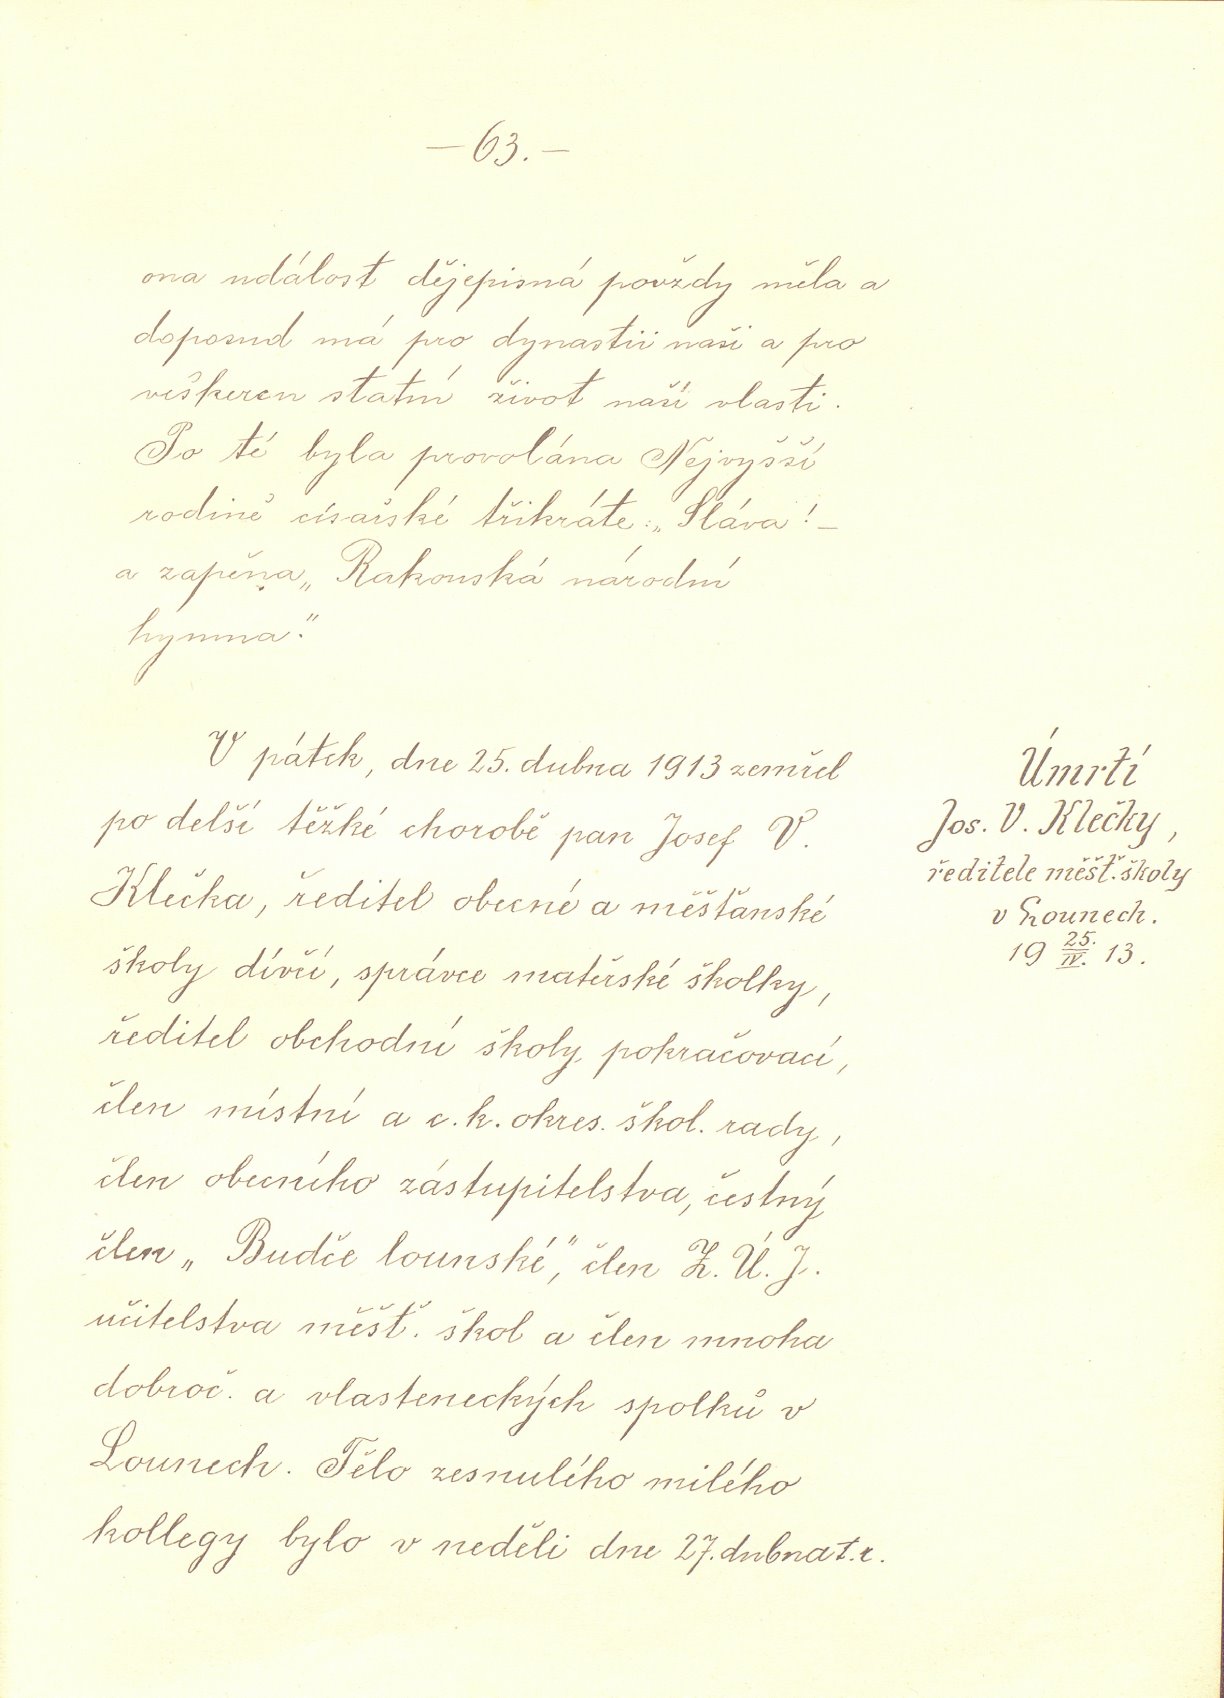 — 63. —
ona událost dějepisná povždy měla a
doposud má pro dynastii naši a pro
veškeren statní život naší vlasti.
Po té byla provolána Nejvyšší
rodině císařské třikráte: „Sláva! –
a zapěna „Rakouská národní
hymna."
V pátek, dne 25. dubna 1913 zemřel
po delší těžké chorobě pan Josef V.
Klečka, ředitel obecné a měšťanské
školy dívčí, správce mateřské školky,
ředitel obchodní školy pokračovací,
člen místní a c. k. okres. škol. rady,
člen obecního zástupitelstva, čestný
člen „Budče lounské", člen Z. Ú. J.
učitelstva měšť. škol a člen mnoha
dobroč. a vlasteneckých spolků v
Lounech. Tělo zesnulého milého
kollegy bylo v neděli dne 27. dubna t. r.
Úmrtí
Jos. V. Klečky,
ředitele měšť. školy
v Lounech.
19 25./IV. 13.